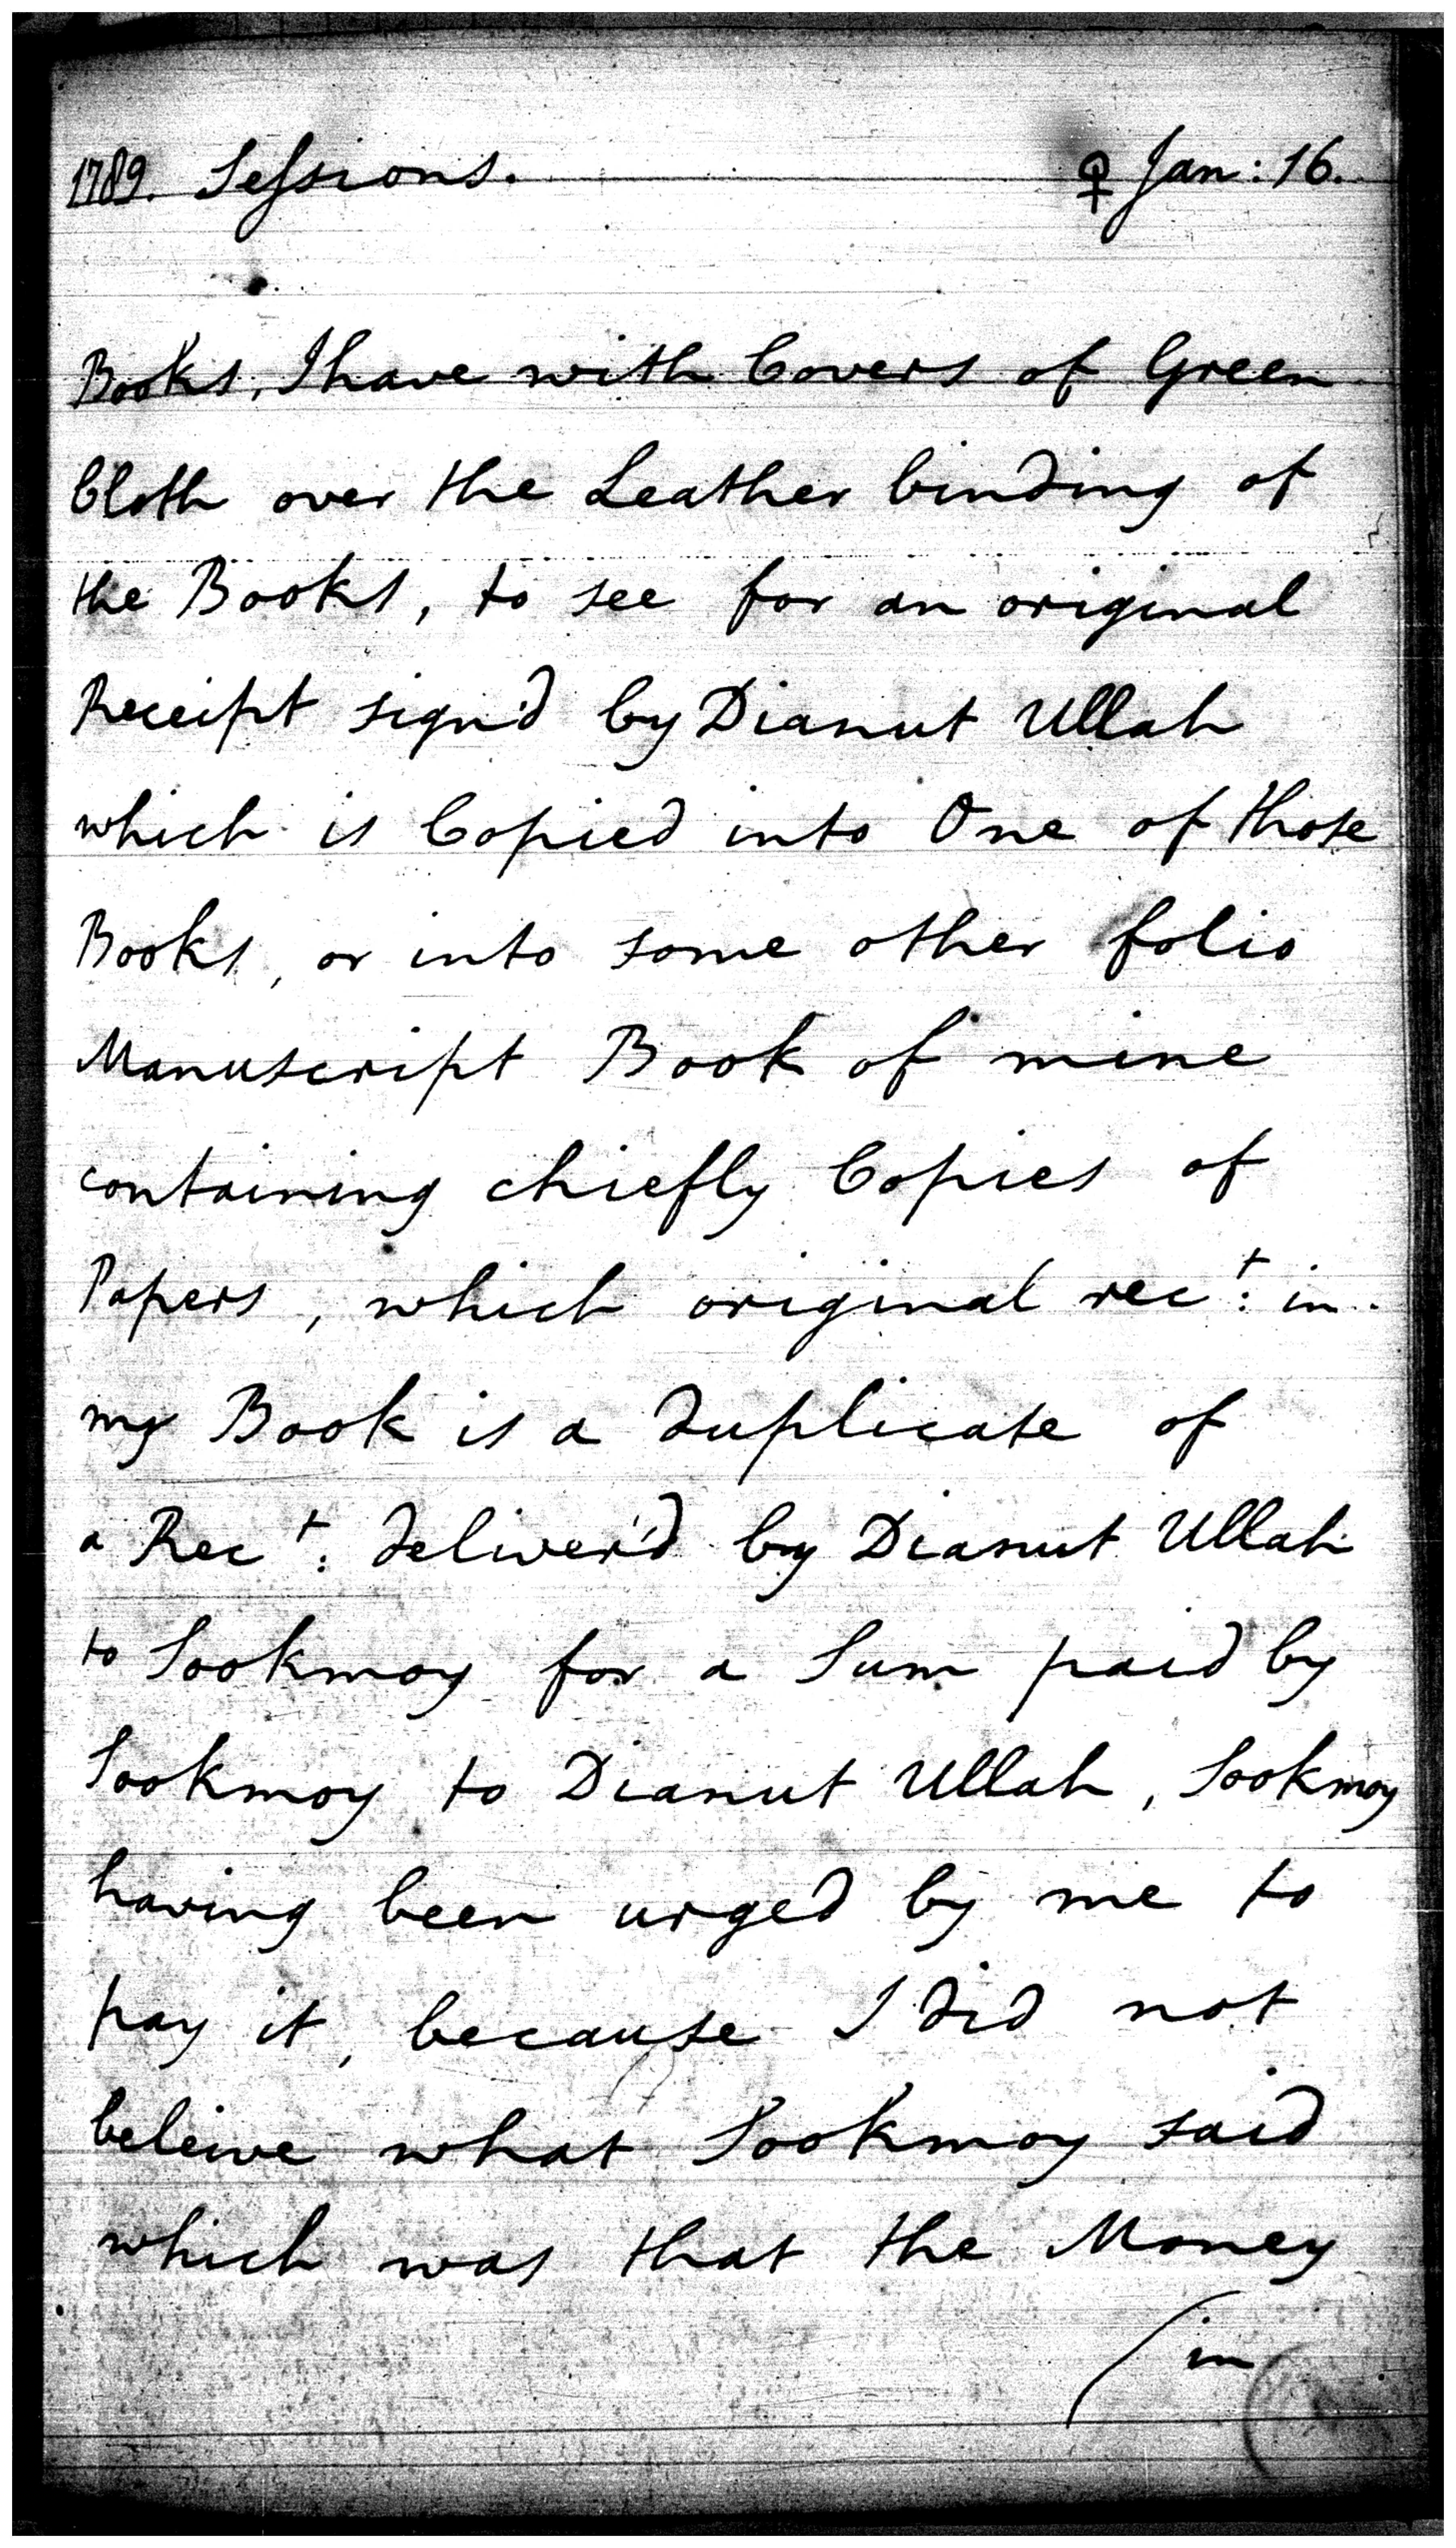 1789. Sessions. ♀ Jan: 16.
Books, I have with Covers of Green
Cloth over the Leather binding of
the Books, to see for an original
Receipt sign'd by Dianut Ullah
which is Copied into One of those
Books, or into some other folio
Manuscript Book of mine
containing chiefly Copies of
Papers, which original rec:t in
my Book is a duplicate of
a Rec:t deliver'd by Dianut Ullah
to Sookmoy for a Sum paid by
Sookmoy to Dianut Ullah, Sookmoy
having been urged by me to
pay it, because I did not
beleive what Sookmoy said
which was that the Money
(in